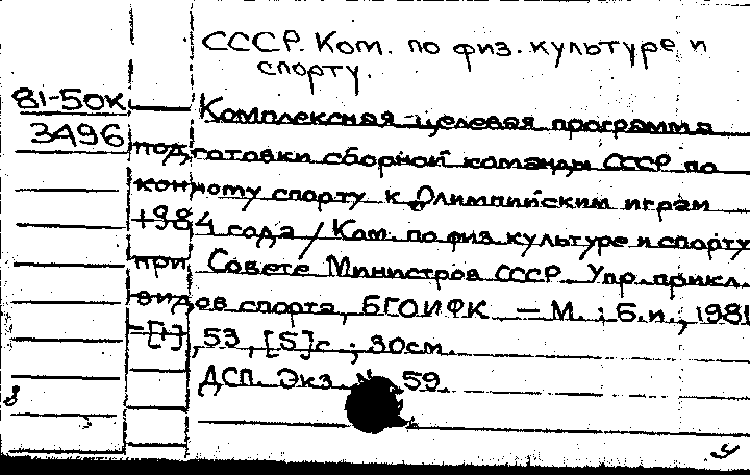 СССР. Ком. по физ. культуре и
спорту.
81-50к
3496
Комплексная целевая программа
подготовки сборной команды СССР по
конному спорту к Олимпийским играм
1984 года / Ком. по физ. культуре и спорту
при Совете Министров СССР. Упр. прикл.
видов спорта, БГОИФК — М. : Б.и., 1981
-[1], 53, [5]с ; 30см.
ДСП. Экз. № 59.